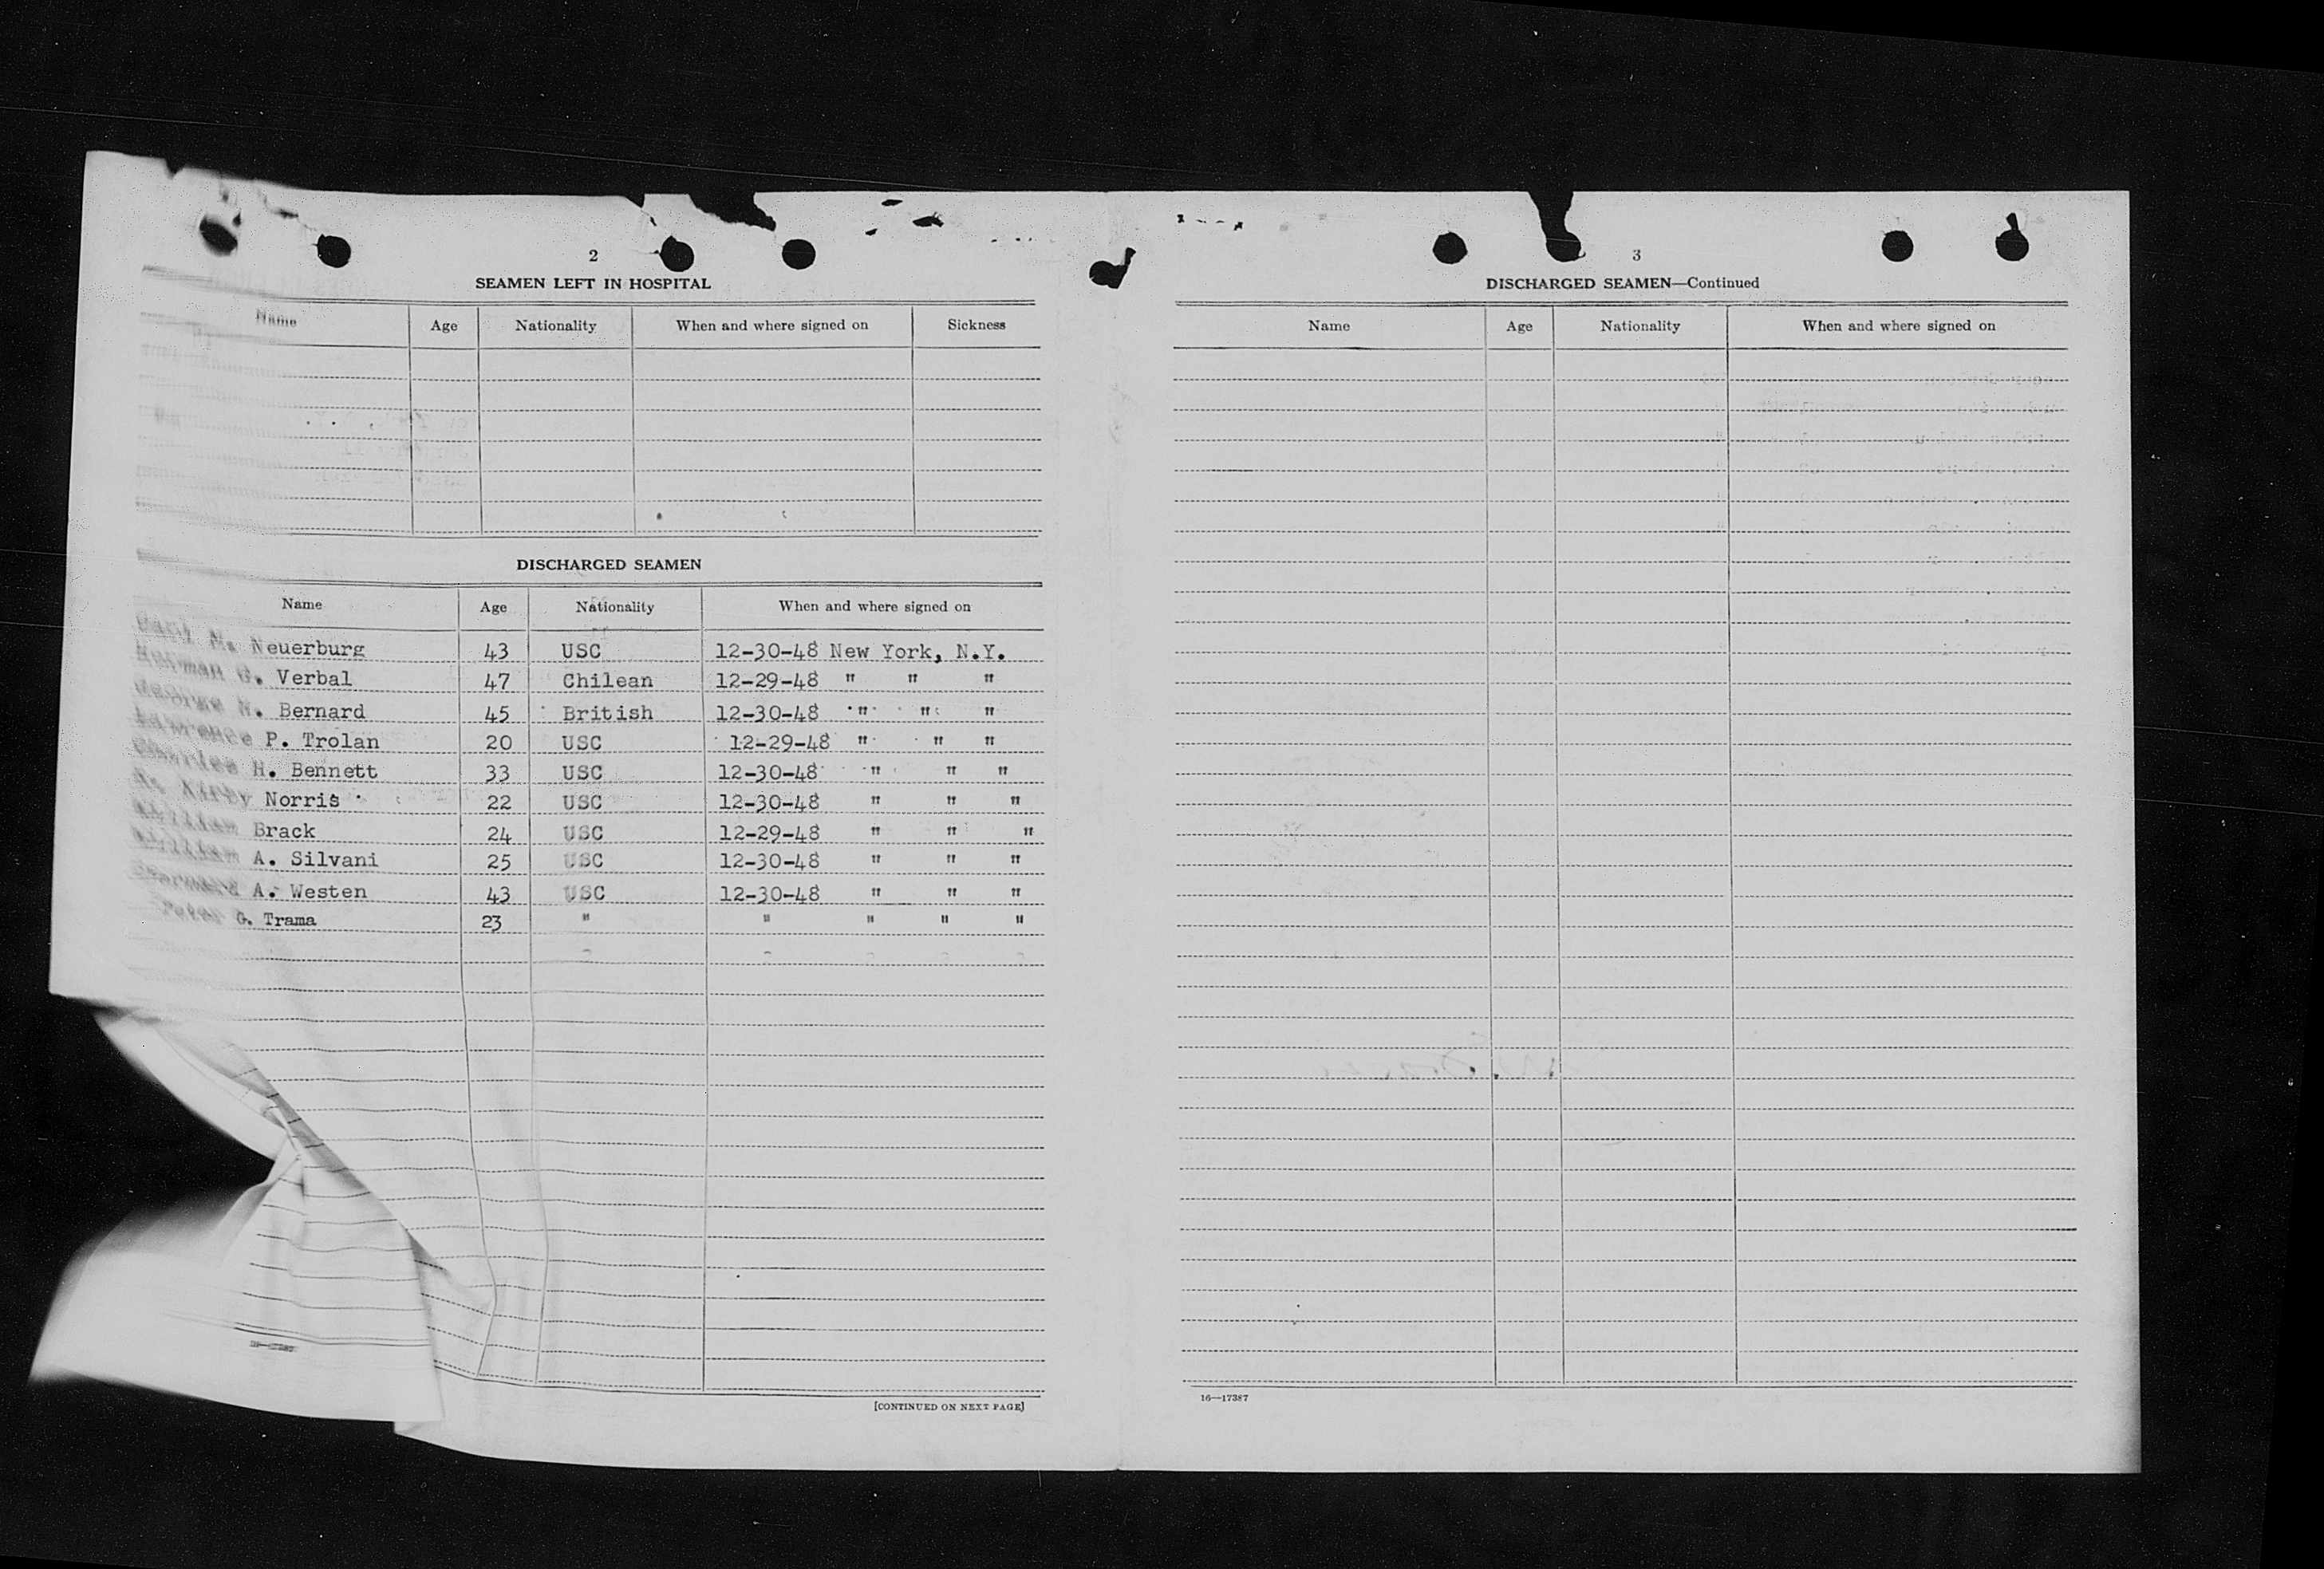 2
SEAMEN LEFT IN HOSPITAL
Name Age Nationality When and where signed on Sickness
DISCHARGED SEAMEN
Name Age Nationality When and where signed on
M. Neuerburg 43 USC 12-30-48 New York, N.Y.
G. Verbal 47 Chilean 12-29-48 " " "
George W. Bernard 45 British 12-30-48 " " "
Lawrence P. Trolan 20 USC 12-29-48 " " "
Charles H. Bennett 33 USC 12-30-48 " " "
Kirby Norris 22 USC 12-30-48 " " "
William Brack 24 USC 12-29-48 " " "
William A. Silvani 25 USC 12-30-48 " " "
A. Westen 43 USC 12-30-48 " " "
Peter G. Trama 23 " " " " "
[CONTINUED ON NEXT PAGE]
3
DISCHARGED SEAMEN—Continued
Name Age Nationality When and where signed on
16—17387